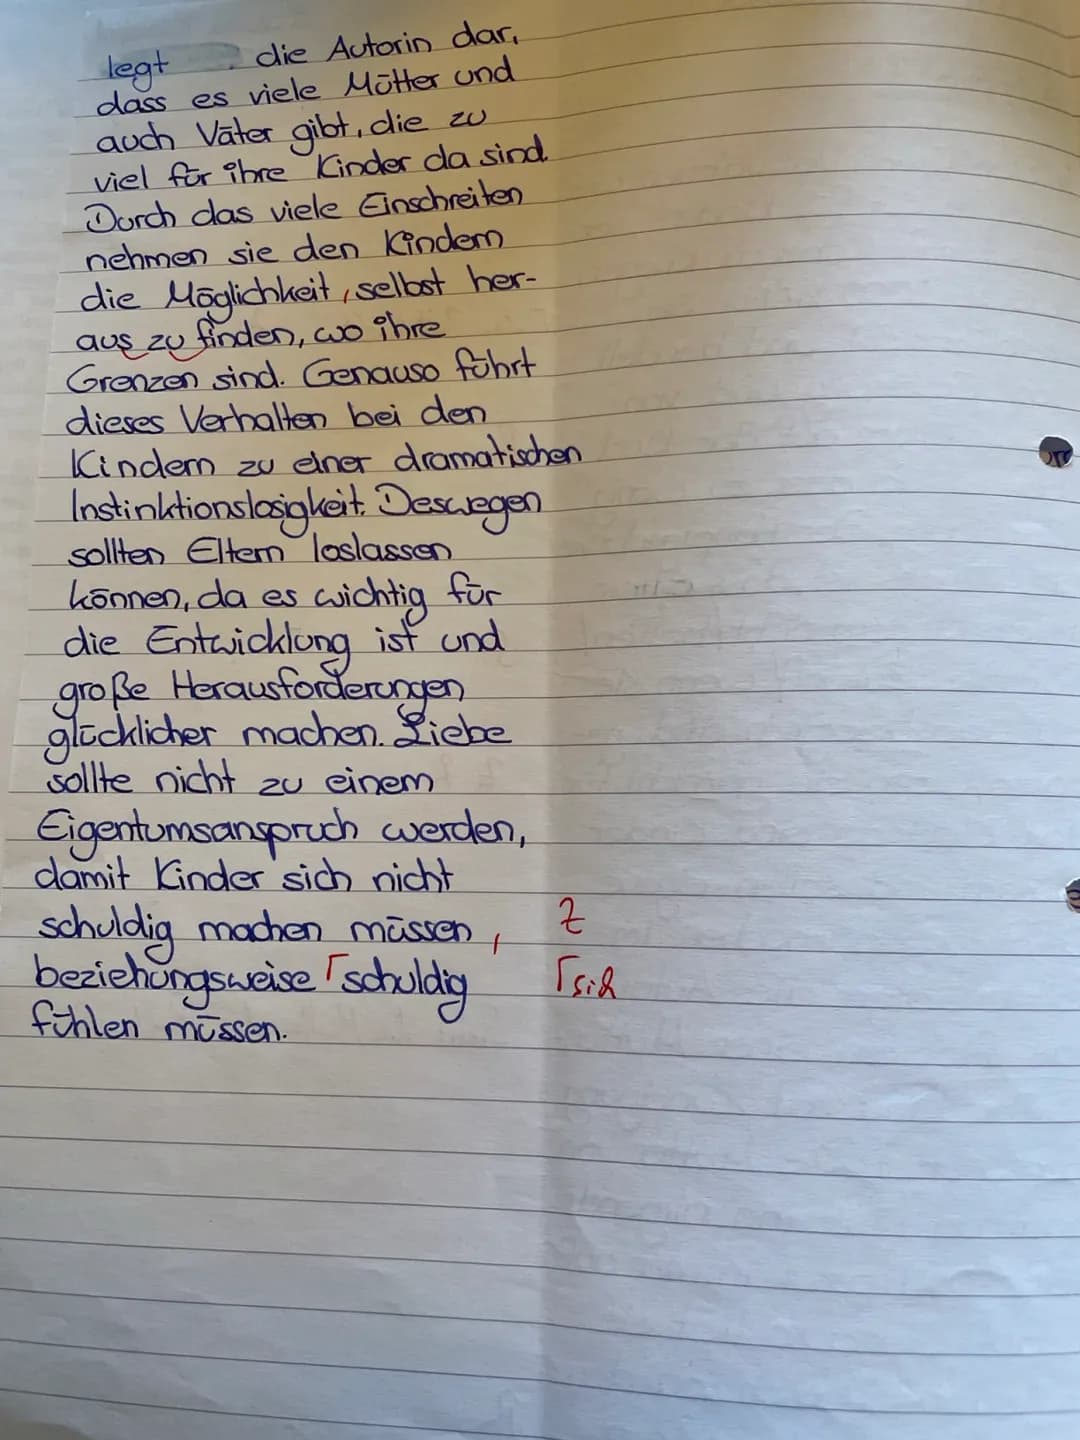 legt die Autorin dar,
dass es viele Mütter und
auch Väter gibt, die zu
viel für ihre Kinder da sind.
Durch das viele Einschreiten
nehmen sie den Kindern
die Möglichkeit, selbst her-
aus zu finden, wo ihre
Grenzen sind. Genauso führt
dieses Verhalten bei den
Kindern zu einer dramatischen
Instinktionslosigkeit. Deswegen
sollten Eltern loslassen
können, da es wichtig für
die Entwicklung ist und
große Herausforderungen
glücklicher machen. Liebe
sollte nicht zu einem
Eigentumsanspruch werden,
damit Kinder sich nicht
schuldig machen müssen, Z
beziehungsweise ⌈schuldig ⌈sich
fühlen müssen.